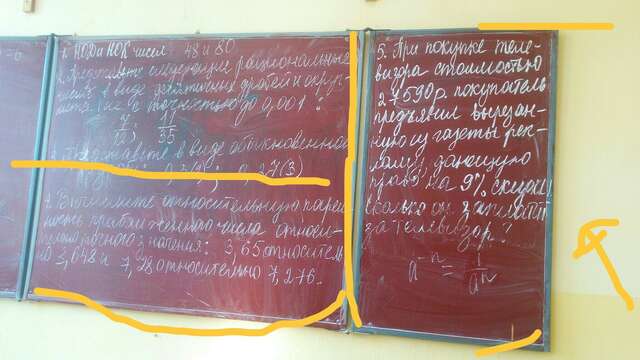 1. НОД и НОК чисел 48 и 80
2. Представьте следующие рациональные
числа в виде десятичных дробей и округ-
с точностью до 0,001:
7/12; 11/35
3. Представьте в виде обыкновенной
0,27(3)
4. Вычислите относительную
ность приближенного числа относи-
значения: 3,65 относитель-
но 3,648 и 7,28 относительно 7,276.
5. При покупке теле-
визора стоимостью
27590р. покупатель
предъявил вырезан-
ную из газеты рек-
ламу, дающую
право на 9% скидки
сколько он заплатит
за телевизор?
a⁻ⁿ = 1/aⁿ